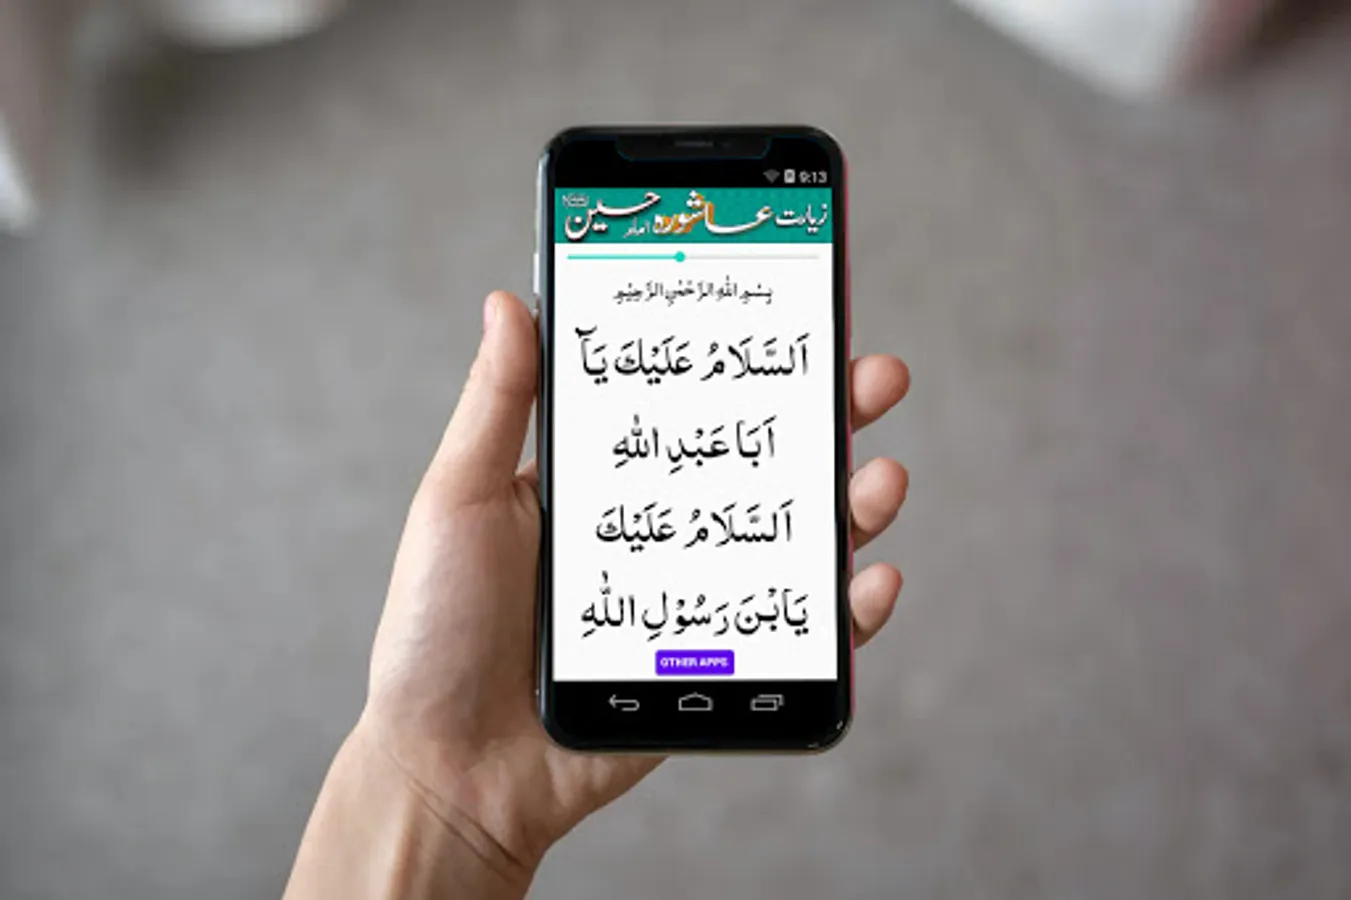 9:13
زیارت عاشورہ امام حسین
بِسْمِ اللهِ الرَّحْمٰنِ الرَّحِيْمِ
اَلسَّلَامُ عَلَيْكَ يَآ
اَبَا عَبْدِ اللهِ
اَلسَّلَامُ عَلَيْكَ
يَابْنَ رَسُوْلِ اللّٰهِ
OTHER APPS